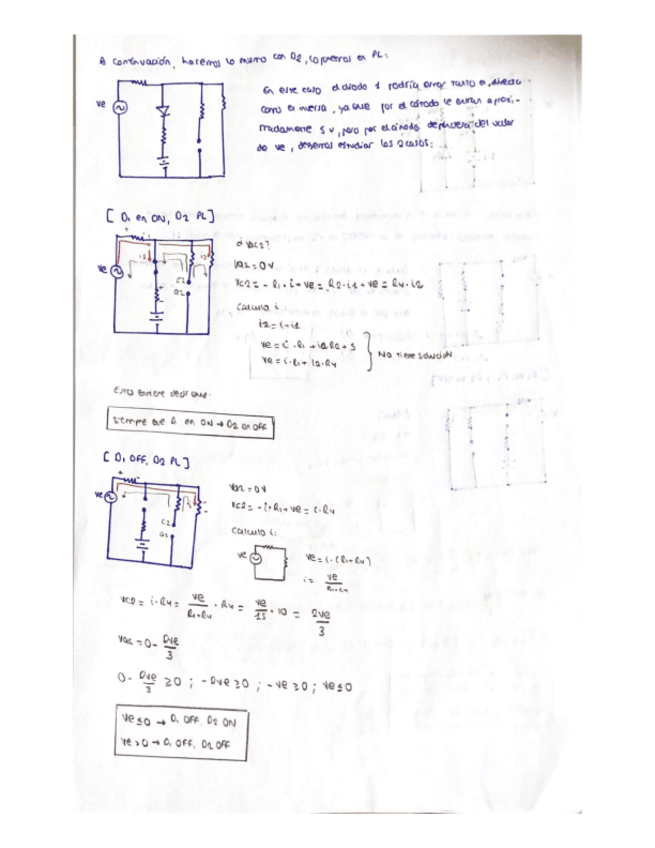 A continuación, haremos lo mismo con D2, lo ponemos en PL:
En este caso el diodo 1 podría estar tanto en directa
como en inversa, ya que por el cátodo le entran aproxi-
madamente 5 v, pero por el ánodo dependerá del valor
de ve, debemos estudiar los 2 casos:
ve
[ D1 en ON, D2 PL ]
ve
+
i
i1
i2
C2
A2
¿ vAC2?
VA2 = 0V
Vc2 = - R1 · i + ve =
+ ve = R4 · i2
Calculo i:
i2 = i + i1
ve = i · R1 + i1 R2 + 5
ve = i · R1 + i2 · R4
No tiene solución
Esto quiere decir que:
Siempre que D1 en ON → D2 en OFF
[ D1 OFF, D2 PL ]
ve
+
C2
VA2 = 0V
Vc2 = - i · R1 + ve = i · R4
Calculo i:
ve
ve = i · (R1 + R4)
i = ve / R1 + R4
Vc2 = i · R4 = ve / R1 + R4 · R4 = ve / 15 · 10 = 2ve / 3
VAC = 0 - 2ve / 3
0 - 2ve / 3 ≥ 0 ; - 2ve ≥ 0 ; - ve ≥ 0 ; ve ≤ 0
ve ≤ 0 → D1 OFF, D2 ON
ve > 0 → D1 OFF, D2 OFF